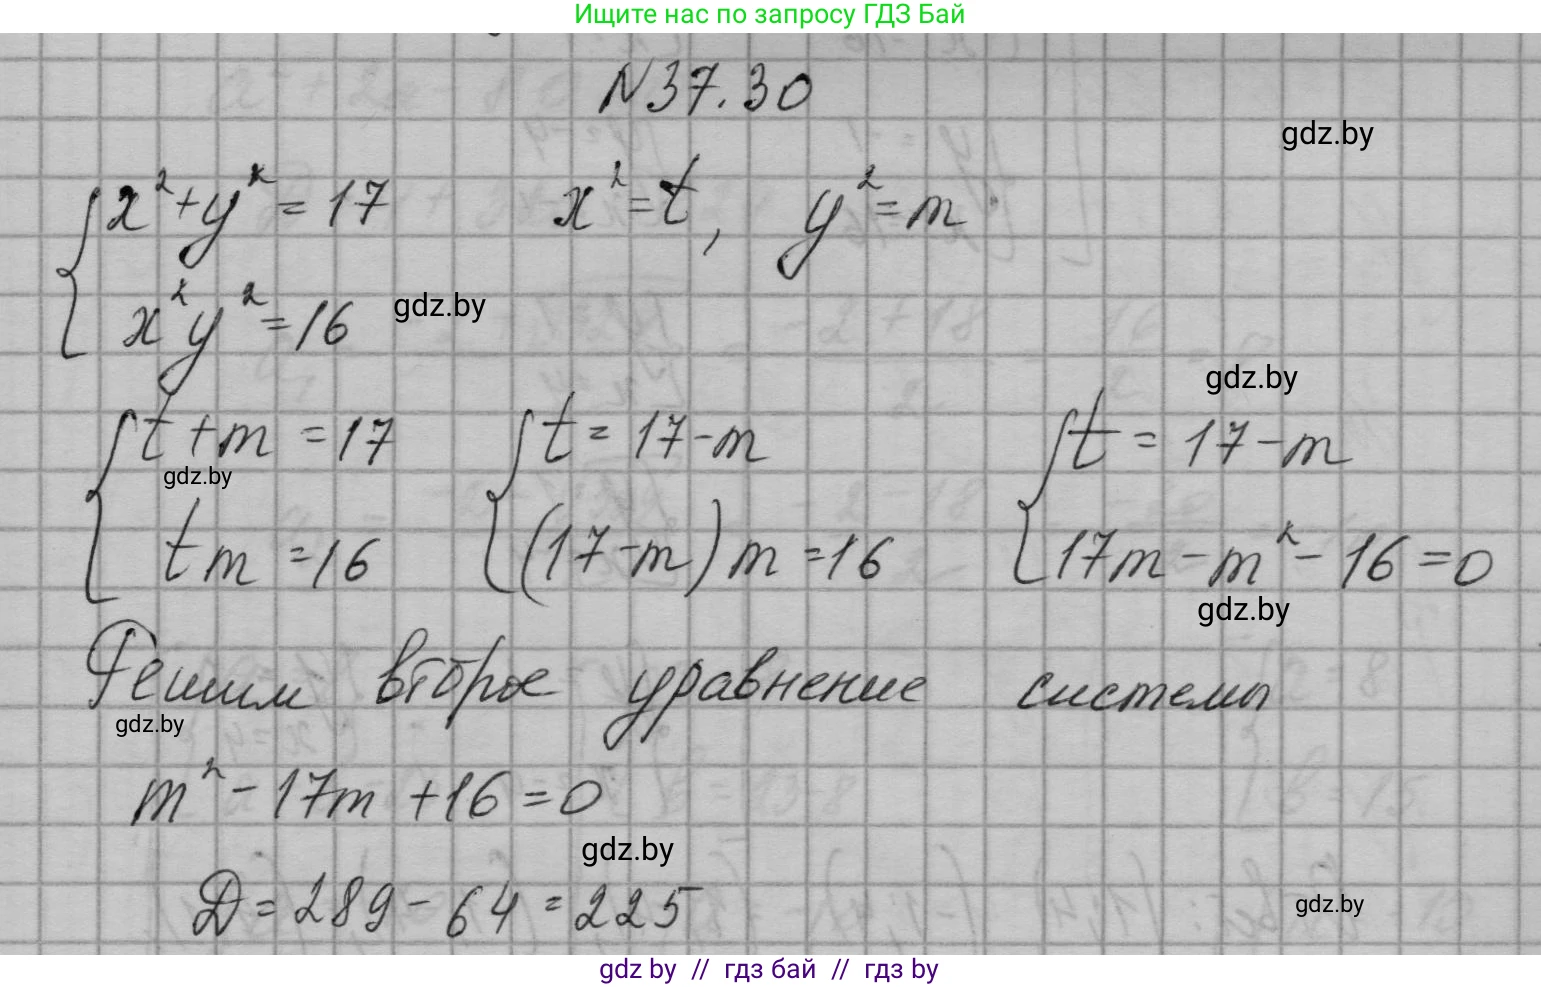 Ищите нас по запросу ГДЗ Бай
N37.30
gdz.by
x²+y²=17 x²=t, y²=m
x²y²=16 gdz.by
gdz.by
t+m=17 t=17-m t=17-m
gdz.by
tm=16 (17-m)m=16 17m-m²-16=0
gdz.by
Решим второе уравнение системы
gdz.by
m²-17m+16=0
gdz.by
D=289-64=225
gdz.by
gdz by // гдз бай // гдз by